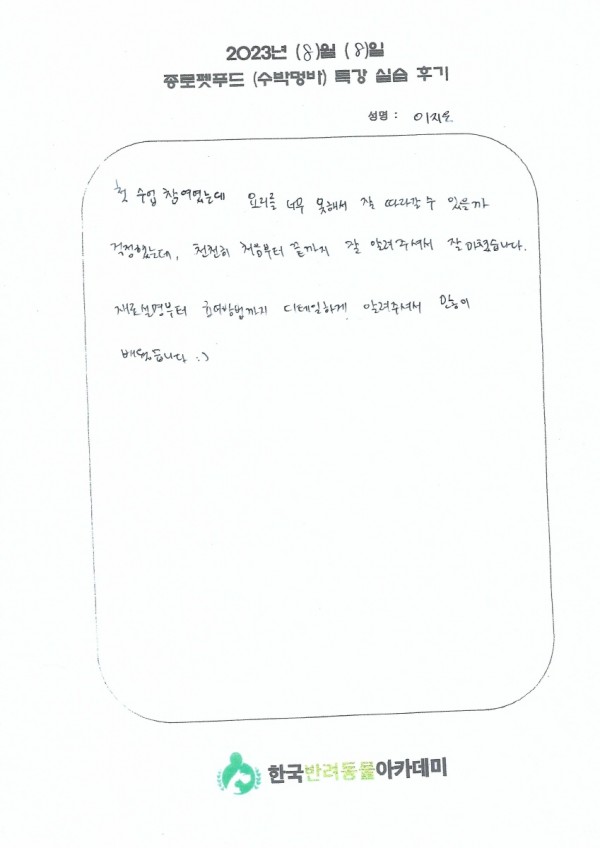 2023년 (8)월 (8)일
종로펫푸드 (수박멍바) 특강 실습 후기
성명 : 이지은
첫 수업 참여였는데 요리를 너무 못해서 잘 따라갈 수 있을까
걱정했는데, 천천히 처음부터 끝까지 잘 알려주셔서 잘 마쳤습니다.
재료설명부터 조리방법까지 디테일하게 알려주셔서 많이
배웠습니다 :)
한국반려동물아카데미